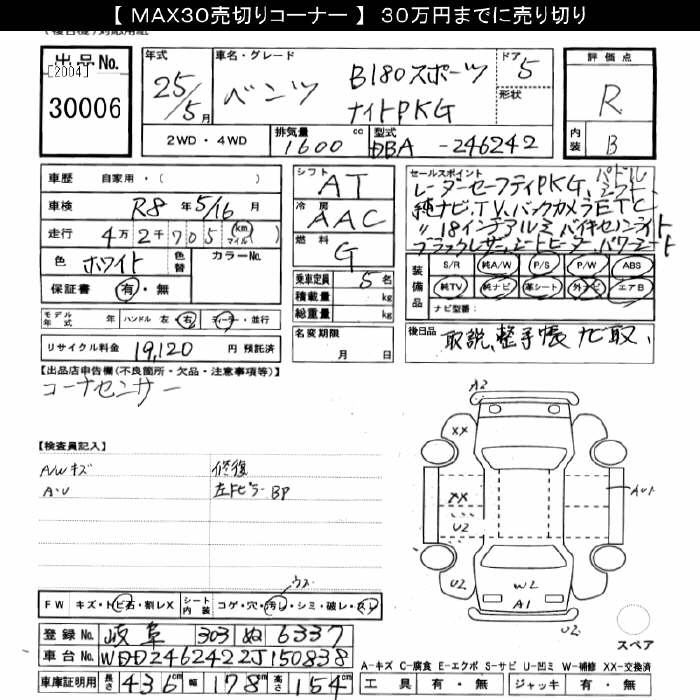 【 MAX30売切りコーナー 】 30万円までに売り切り
出品No.
[2004]
30006
年式
25/5月
車名・グレード
ベンツ
B180スポーツ
ナイトPKG
ドア
5
形状
2WD・4WD
排気量
1600 cc
型式
DBA -246242
評価点
R
内装
B
車歴 自家用・( )
車検 R8 年 5/16 月
走行 4万2千705 km マイル
色 ホワイト 色替 カラーNo.
保証書 有・無
シフト AT
冷房 AAC
燃料 G
乗車定員 5 名
積載量 kg
総重量 kg
名変期限
月 日
セールスポイント パドル
レーダーセーフティPKG、シフト
純ナビ、TV、バックカメラETC
〃18インチアルミ バイキセノンライト
ブラックレザー、シートヒーター、パワーシート
装備品
S/R 純A/W P/S P/W ABS
純TV 純ナビ 革シート 外ナビ エアB
ナビ型番:
モデル年式 年 ハンドル 左・右 ディーラー・並行
リサイクル料金 19,120 円 預託済
後日品 取説、整手帳 ナビ取、
【出品店申告欄(不良箇所・欠品・注意事項等)】
コーナーセンサー
【検査員記入】
A/Wキズ
A・U
修復
左ドピラーBP
A2
XX
XX
U2
AU1
U2
W2
A1
U2
U2
スペア
FW キズ・トビ石・割レX
シート内装 コゲ・穴・汚レ・シミ・破レ・スレ
登録No. 岐阜 303 ぬ 6337
車台No. WDD2462422J150838
車庫証明用 長さ 436cm 幅 178cm 高さ 154cm
A-キズ C-腐食 E-エクボ S-サビ U-凹ミ W-補修 XX-交換済
工具 有・無 ジャッキ 有・無